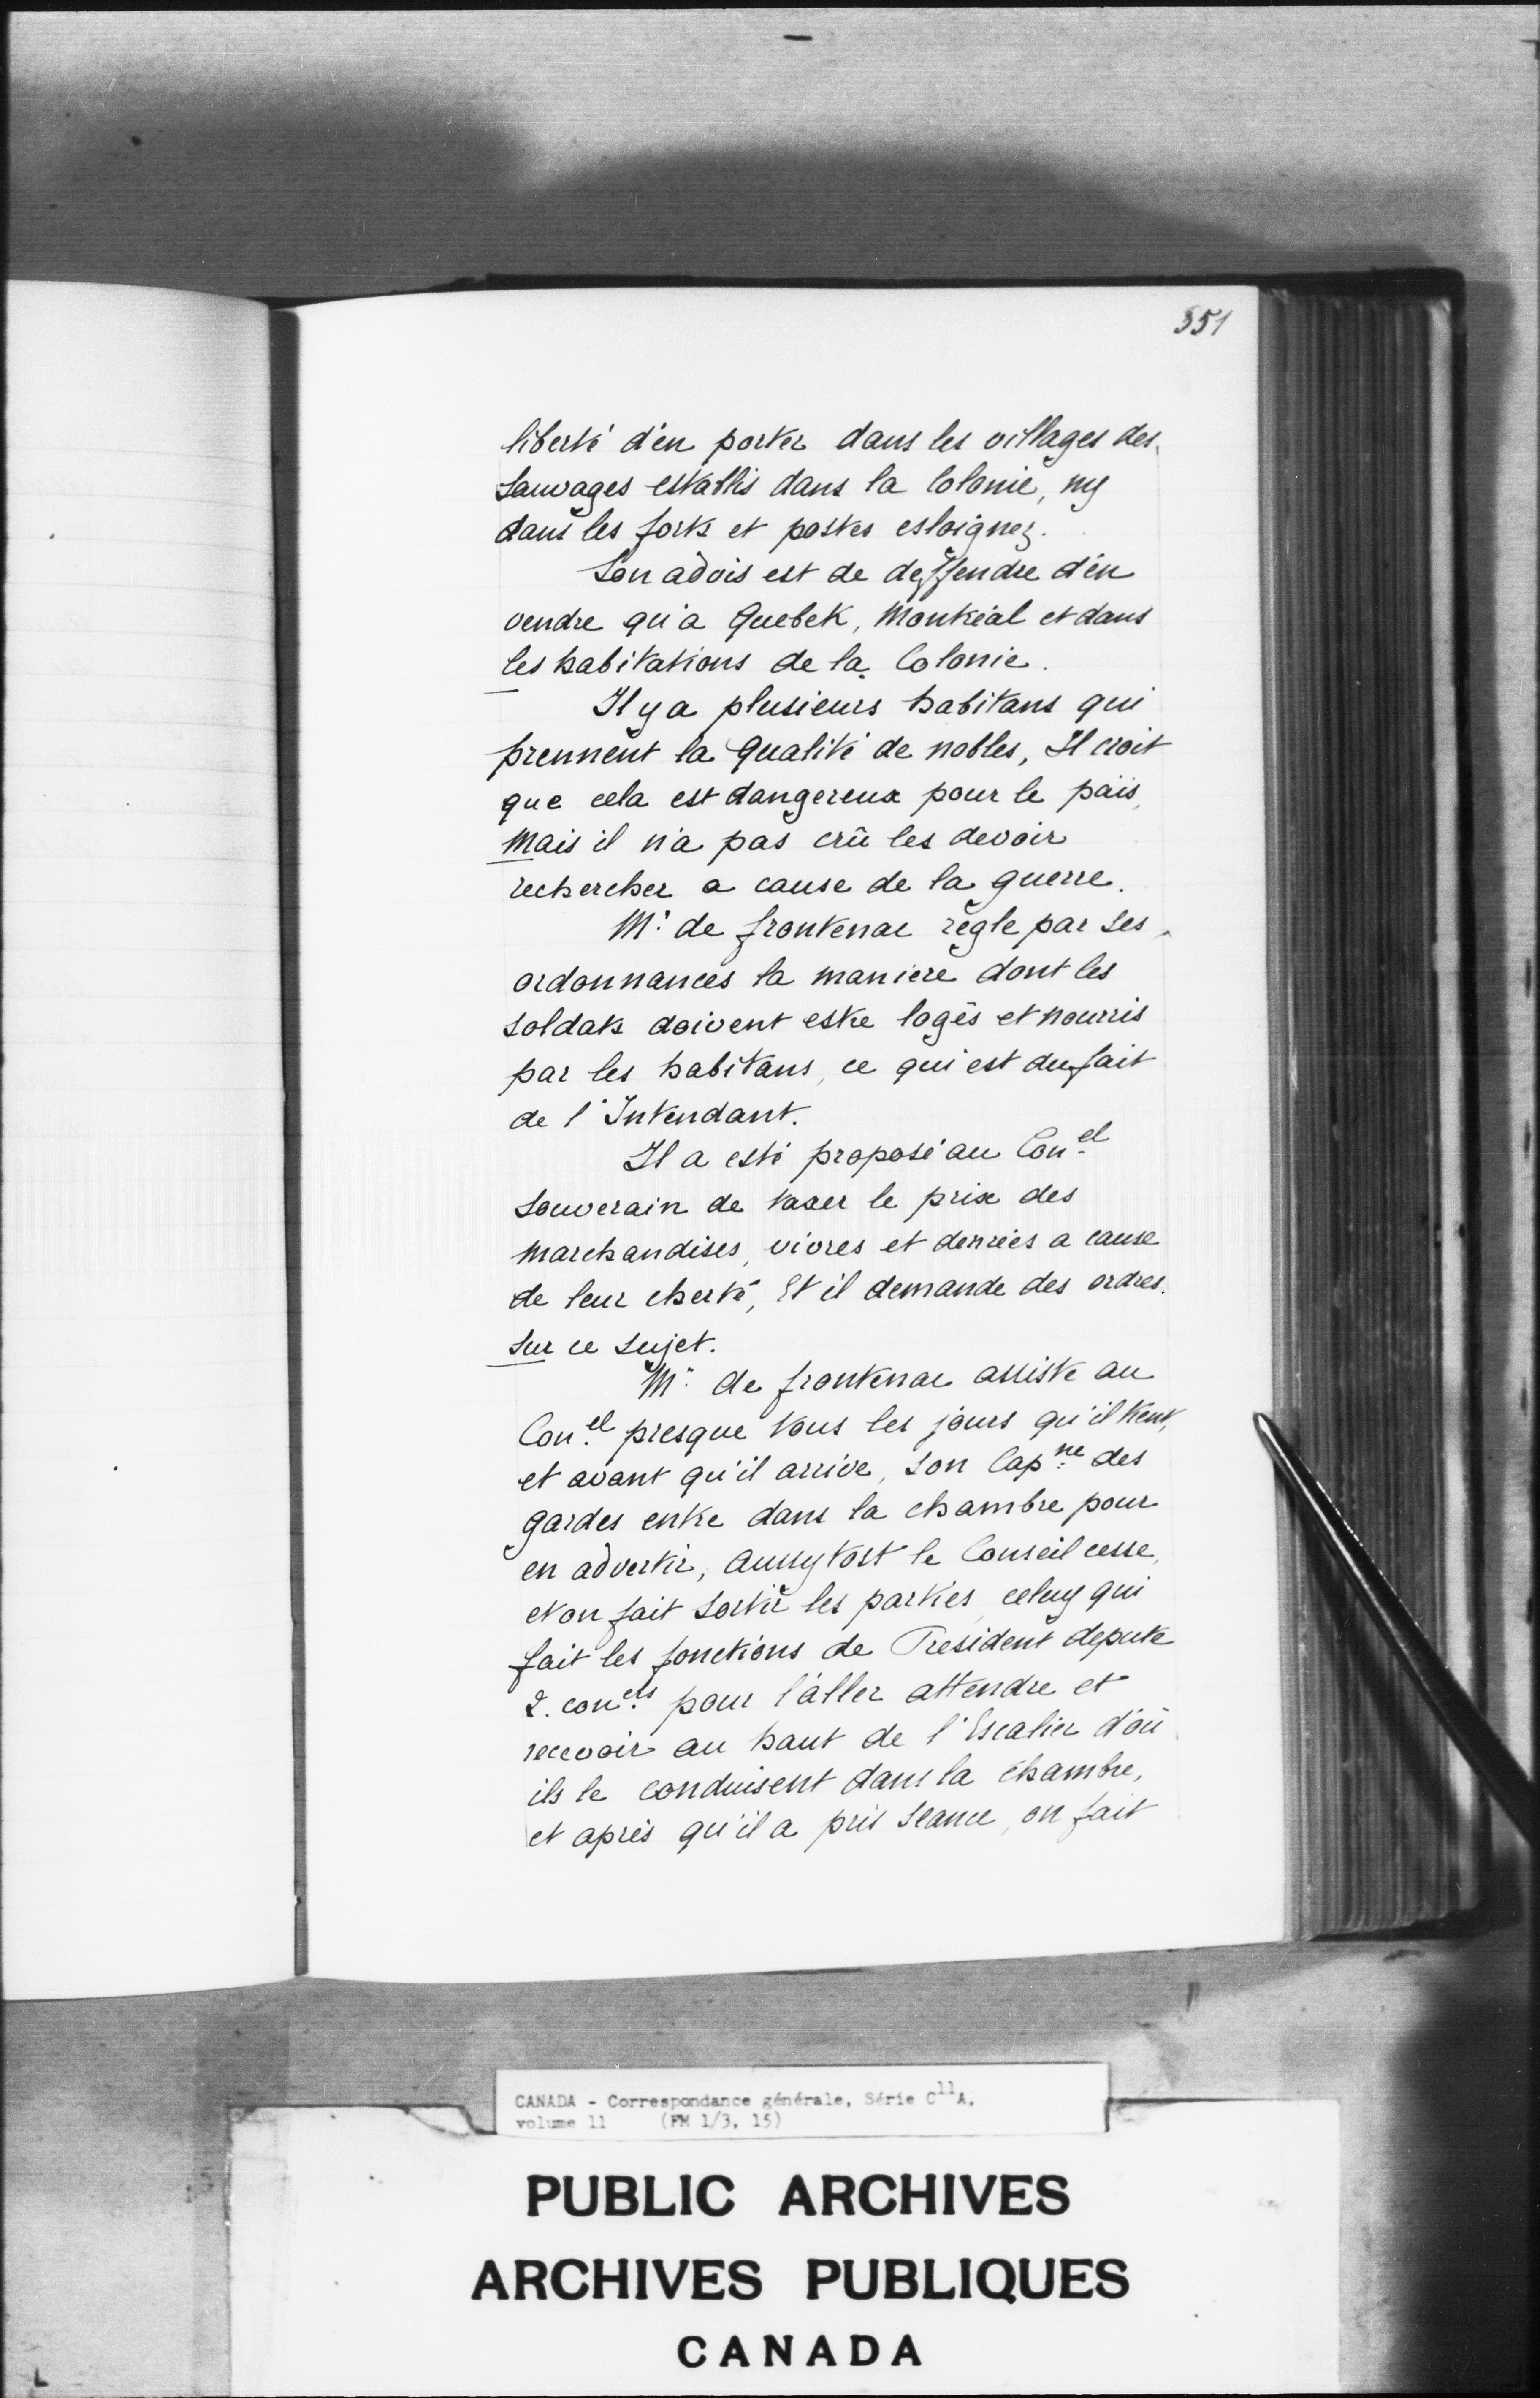 351
liberté d'en porter dans les villages des
Sauvages establis dans la Colonie, ny
dans les forts et postes esloignez.
Son advis est de deffendre d'en
vendre qu'a Quebek, Montréal et dans
les habitations de la Colonie.
Il y a plusieurs habitans qui
prennent la qualité de nobles, Il croit
que cela est dangereux pour le païs,
Mais il n'a pas crû les devoir
rechercher a cause de la guerre.
Mr. de frontenac règle par ses
ordonnances la maniere dont les
soldats doivent estre logés et nourris
par les habitans, ce qui est du fait
de l'Intendant.
Il a esté proposé au Con.el
Souverain de taxer le prix des
marchandises, vivres et denrées a cause
de leur cherté, Et il demande des ordres
sur ce sujet.
Mr. de frontenac assiste au
Con.el presque tous les jours qu'il tient,
et avant qu'il arrive, son Cap.ne des
gardes entre dans la chambre pour
en advertir, aussytost le Conseil cesse,
et on fait sortir les parties, celuy qui
fait les fonctions de President depute
2. con.ers pour l'aller attendre et
recevoir au haut de l'Escalier d'où
ils le conduisent dans la chambre,
et après qu'il a pris seance, on fait
CANADA - Correspondance générale, Série C11A,
volume 11 (FM 1/3, 15)
PUBLIC ARCHIVES
ARCHIVES PUBLIQUES
CANADA
L